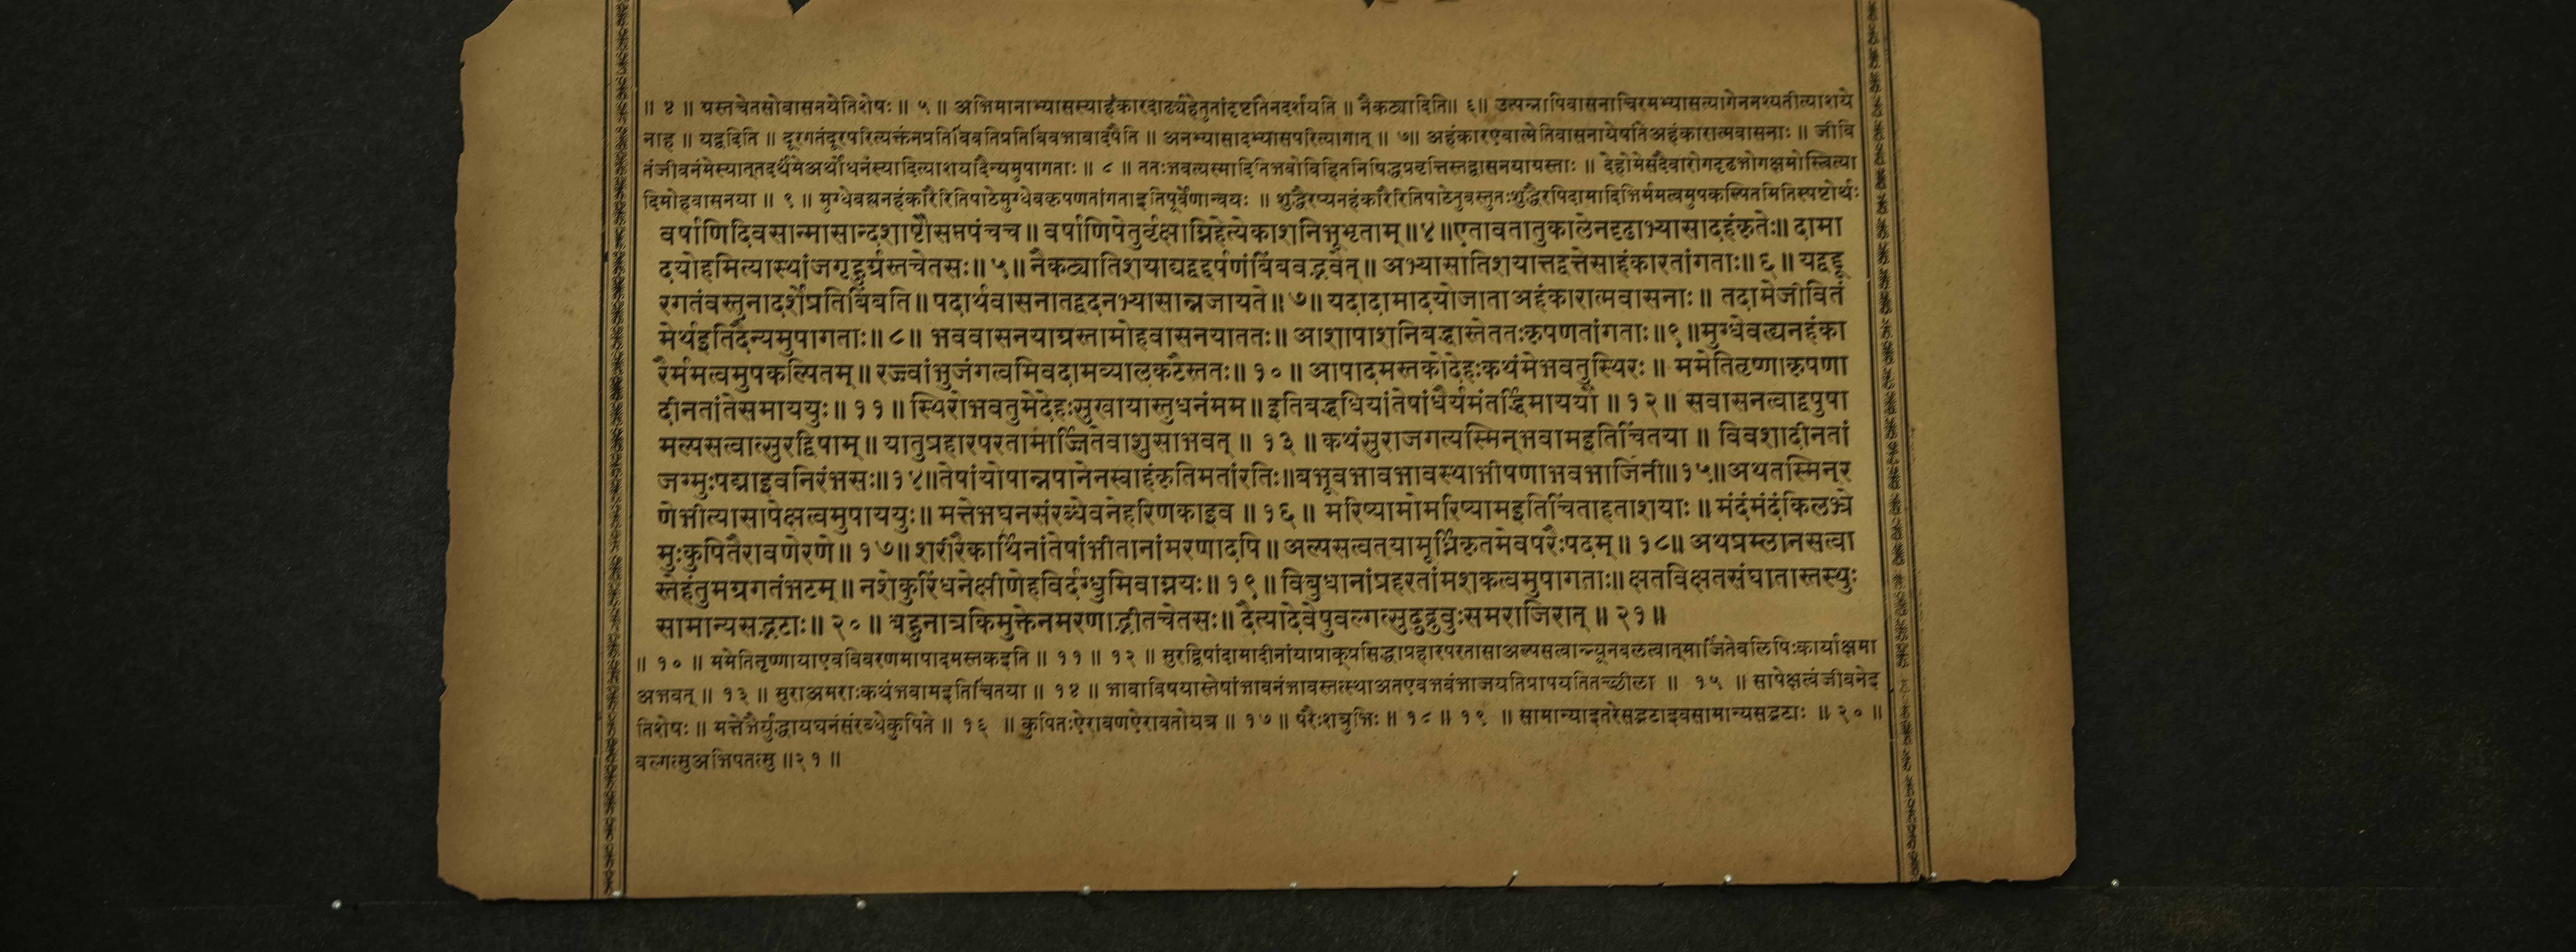 ॥ ४ ॥ ग्रस्तचेतसोवासनयेतिशेषः ॥ ५ ॥ अभिमानाभ्यासस्याहंकारदार्ढ्यहेतुतांदृष्टांतेनदर्शयति ॥ नैकट्यादिति॥ ६॥ उत्पन्नापिवासनाचिरमभ्यासत्यागेननश्यतीत्याशये
नाह ॥ यद्वदिति ॥ दूरगतंदूरपरित्यक्तंनप्रतिबिंबतिप्रतिबिंबभावादपैति ॥ अनभ्यासादभ्यासपरित्यागात् ॥ ७॥ अहंकारएवात्मेतिवासनायेषांतेअहंकारात्मवासनाः ॥ जीवि
तंजीवनंमेस्यात्तदर्थंमेअर्थोधनंस्यादित्याशयदैन्यमुपागताः ॥ ८ ॥ ततःभवत्यस्मादितिभवोविहितनिषिद्धप्रवृत्तिस्तद्वासनयाग्रस्ताः ॥ देहोमेसदैवारोगदृढभोगक्षमोस्त्वित्या
दिमोहवासनया ॥ ९ ॥ मुग्धेवह्यनहंकारैरितिपाठेमुग्धेवकृपणतांगताइतिपूर्वेणान्वयः ॥ शुद्धैरप्यनहंकारैरितिपाठेनुवस्तुतःशुद्धैरपिदामादिभिर्ममत्वमुपकल्पितमितिस्पष्टोर्थः
वर्षाणिदिवसान्मासान्दशाष्टौसप्तपंचच॥ वर्षाणिपेतुर्वृक्षाग्निहेत्येकाशनिभूभृताम्॥४॥एतावतातुकालेनदृढाभ्यासादहंकृतेः॥ दामा
दयोहमित्यास्थांजगृहुर्ग्रस्तचेतसः॥ ५॥ नैकट्यातिशयाद्यद्वद्दर्पणंबिंबवद्भवेत्॥ अभ्यासातिशयात्तद्वत्तेसाहंकारतांगताः॥ ६॥ यद्वद्दू
रगतंवस्तुनादर्शेप्रतिबिंबति॥ पदार्थवासनातद्वदनभ्यासान्नजायते॥ ७॥ यदादामादयोजाताअहंकारात्मवासनाः॥ तदामेजीवितं
मेर्थइतिदैन्यमुपागताः॥ ८॥ भववासनयाग्रस्तामोहवासनयाततः॥ आशापाशनिबद्धास्तेततःकृपणतांगताः॥९॥मुग्धेवह्यनहंका
रैर्ममत्वमुपकल्पितम्॥ रज्ज्वांभुजंगत्वमिवदामव्यालकटैस्ततः॥ १०॥ आपादमस्तकोदेहःकथंमेभवतुस्थिरः॥ ममेतितृष्णाकृपणा
दीनतांतेसमाययुः॥ ११॥ स्थिरोभवतुमेदेहःसुखायास्तुधनंमम॥ इतिबद्धधियांतेषांधैर्यमंतर्द्धिमाययौ॥ १२॥ सवासनत्वाद्वपुषा
मल्पसत्वात्सुरद्विषाम्॥ यातुप्रहारपरतामार्ज्जितेवाशुसाभवत्॥ १३॥ कथंसुराजगत्यस्मिन्भवामइतिचिंतया॥ विवशादीनतां
जग्मुःपद्माइवनिरंभसः॥१४॥तेषांयोषान्नपानेनस्वाहंकृतिमतांरतिः॥बभूवभावभावस्थाभीषणाभवभाजिनी॥१५॥अथतस्मिन्र
णेभीत्यासापेक्षत्वमुपाययुः॥ मत्तेभघनसंरब्धेवनेहरिणकाइव॥ १६॥ मरिष्यामोमरिष्यामइतिचिंताहताशयाः॥ मंदंमंदंकिलभ्रे
मुःकुपितैरावणेरणे॥ १७॥ शरीरैकार्थिनांतेषांभीतानांमरणादपि॥ अल्पसत्वतयामूर्ध्निकृतमेवपरैःपदम्॥ १८॥ अथप्रम्लानसत्वा
स्तेहंतुमग्रगतंभटम्॥ नशेकुरिंधनेक्षीणेहविर्दग्धुमिवाग्नयः॥ १९॥ विबुधानांप्रहरतांमशकत्वमुपागताः॥ क्षतविक्षतसंघातास्तस्थुः
सामान्यसद्भटाः॥ २०॥ बहुनात्रकिमुक्तेनमरणाद्भीतचेतसः॥ दैत्यादेवेषुवल्गत्सुदुद्रुवुःसमराजिरात्॥ २१॥
॥ १० ॥ ममेतितृष्णायाएवविवरणमापादमस्तकइति ॥ ११ ॥ १२ ॥ सुरद्विषांदामादीनांयाप्राक्प्रसिद्धाप्रहारपरतासाअल्पसत्वान्न्यूनबलत्वात्मार्जितेवलिपिःकार्याक्षमा
अभवत् ॥ १३ ॥ सुराअमराःकथंभवामइतिचिंतया ॥ १४ ॥ भावाविषयास्तेषांभावनंभावस्तत्स्थाअतएवभवंभाजयतिप्रापयतितच्छीला ॥ १५ ॥ सापेक्षत्वंजीवनेइ
तिशेषः ॥ मत्तेभैर्युद्धायघनंसंरब्धेकुपिते ॥ १६ ॥ कुपितःऐरावणऐरावतोयत्र ॥ १७ ॥ परैःशत्रुभिः ॥ १८ ॥ १९ ॥ सामान्याइतरेसद्भटाइवसामान्यसद्भटाः ॥ २० ॥
वल्गत्सुअभिपतत्सु ॥२१॥